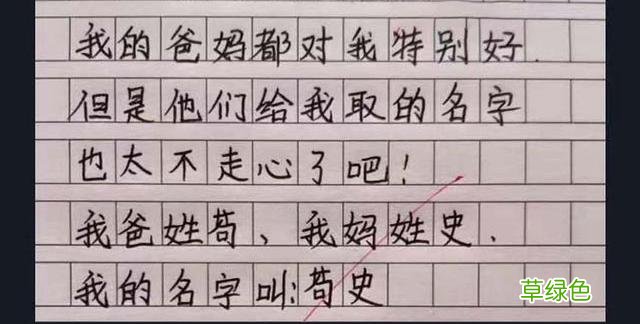 我的爸妈都对我特别好.
但是他们给我取的名字
也太不走心了吧!
我爸姓苟、我妈姓史.
我的名字叫:苟史
草绿色